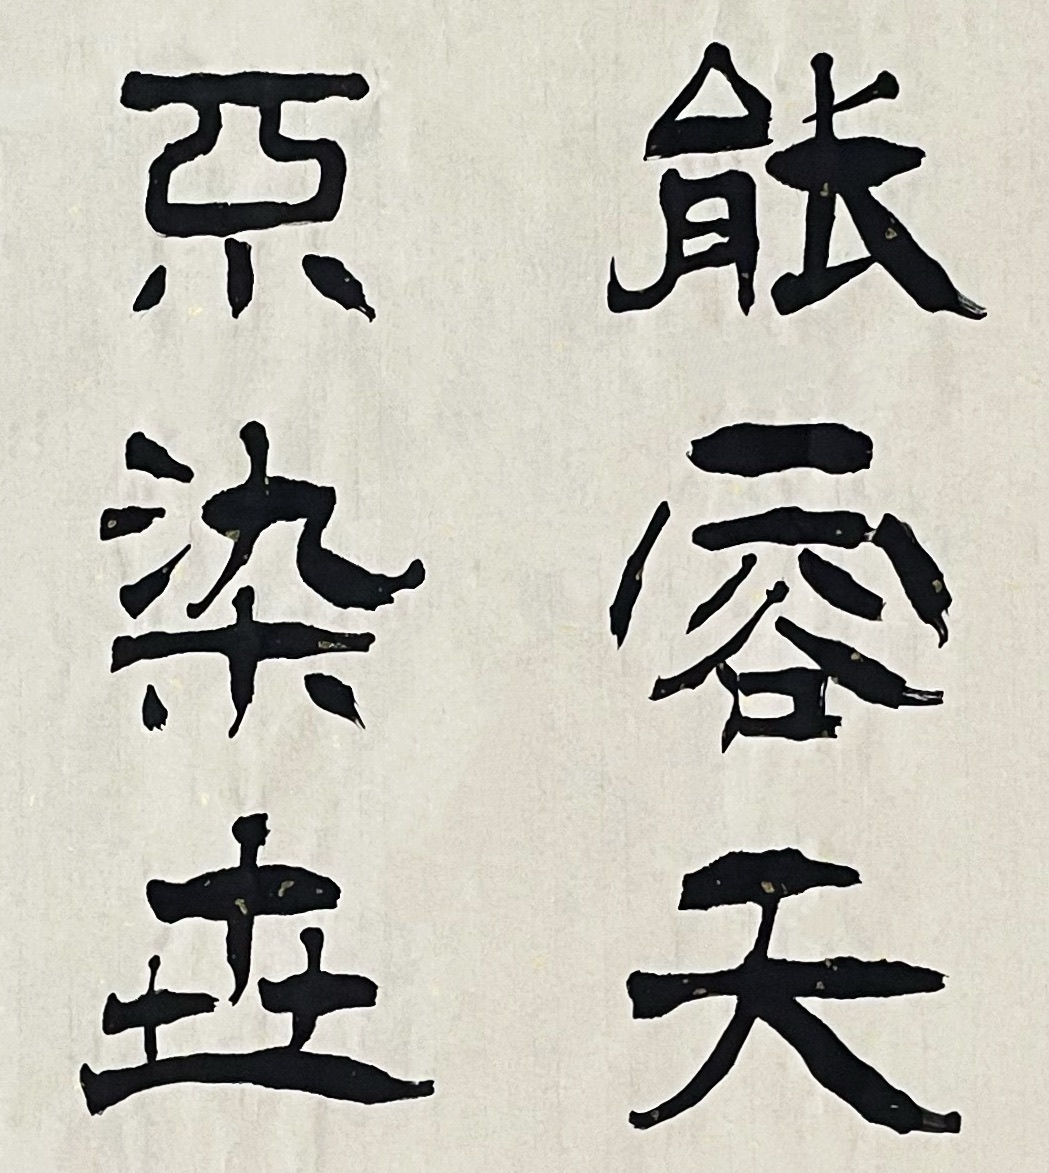 能容天
不染世